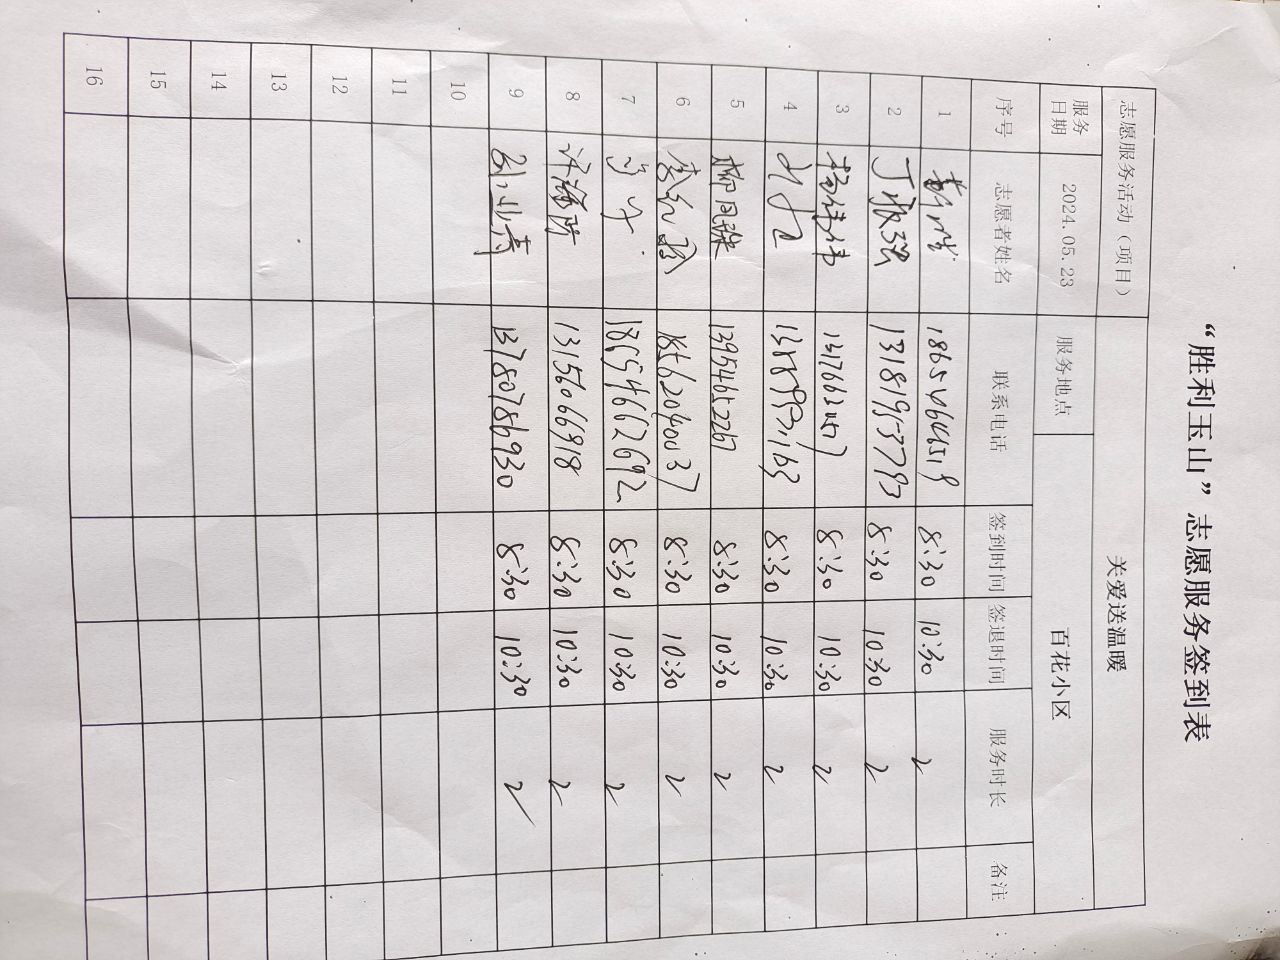 “胜利玉山”志愿服务签到表
志愿服务活动（项目） 关爱送温暖
服务日期 2024.05.23 服务地点 百花小区
序号 志愿者姓名 联系电话 签到时间 签退时间 服务时长 备注
1 18654646519 8:30 10:30 2
2 丁淑强 13181953793 8:30 10:30 2
3 杨伟伟 8:30 10:30 2
4 8:30 10:30 2
5 柳同珠 13954652267 8:30 10:30 2
6 18562040037 8:30 10:30 2
7 18654662692 8:30 10:30 2
8 许海霞 13156066918 8:30 10:30 2
9 13780786930 8:30 10:30 2
10
11
12
13
14
15
16